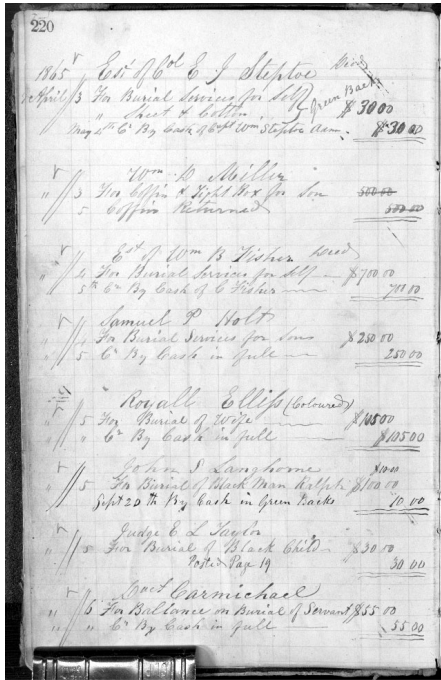 220
1865 Est of Col E J Steptoe Decd
April 3 For Burial Services for Self Green Backs
" Sheet & Cotton $30 00
May 4th Cr By Cash of Capt Wm Steptoe Adm. $30 00
Wm D Miller
" 3 For Coffin & Tight Box for Son 500 00
5 Coffin Returned 500 00
Est of Wm B Fisher Decd
" 4 For Burial Services for Self $700 00
5th Cr By Cash of C Fisher 700 00
Samuel P Holt
" 4 For Burial Services for Sons $250 00
" 5 Cr By Cash in full 250 00
Royall Elliss (Coloured)
" 5 For Burial of Wife $105 00
" " Cr By Cash in full $105 00
John S Langhorne $10 00
" 5 For Burial of Black Man Ralph $100 00
Sept 20th By Cash in Green Backs 10 00
Judge E L Taylor
" 5 For Burial of Black Child $30 00
Posted Page 19 30 00
Carmichael
" 6 For Ballance on Burial of Servant $55 00
" " Cr By Cash in full 55 00